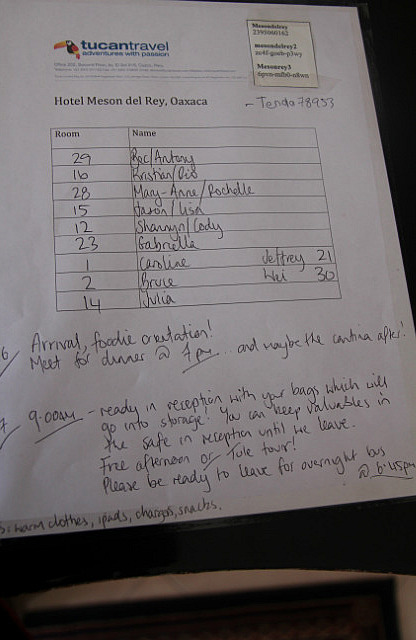 tucantravel
adventures with passion
Mesondelrey
2395000162
mesondelrey2
Mesonrey3
Hotel Meson del Rey, Oaxaca
- Tenda78953
Room Name
29 Bec/Antony
16 Kristian/
28 Mary-Anne/Rochelle
15 Jason/Lisa
12 Shannyn/Cody
23 Gabriella
1 Caroline Jeffrey 21
2 Bruce Wei 30
14 Julia
Arrival, foodie orientation!
Meet for dinner @ 7pm and maybe the cantina after!
9:00am - ready in reception with your bags which will
go into storage! You can keep valuables in
the safe in reception until we leave.
Free afternoon or Tule tour!
Please be ready to leave for overnight bus
@ 6:45pm
warm clothes, ipads, chargers, snacks.